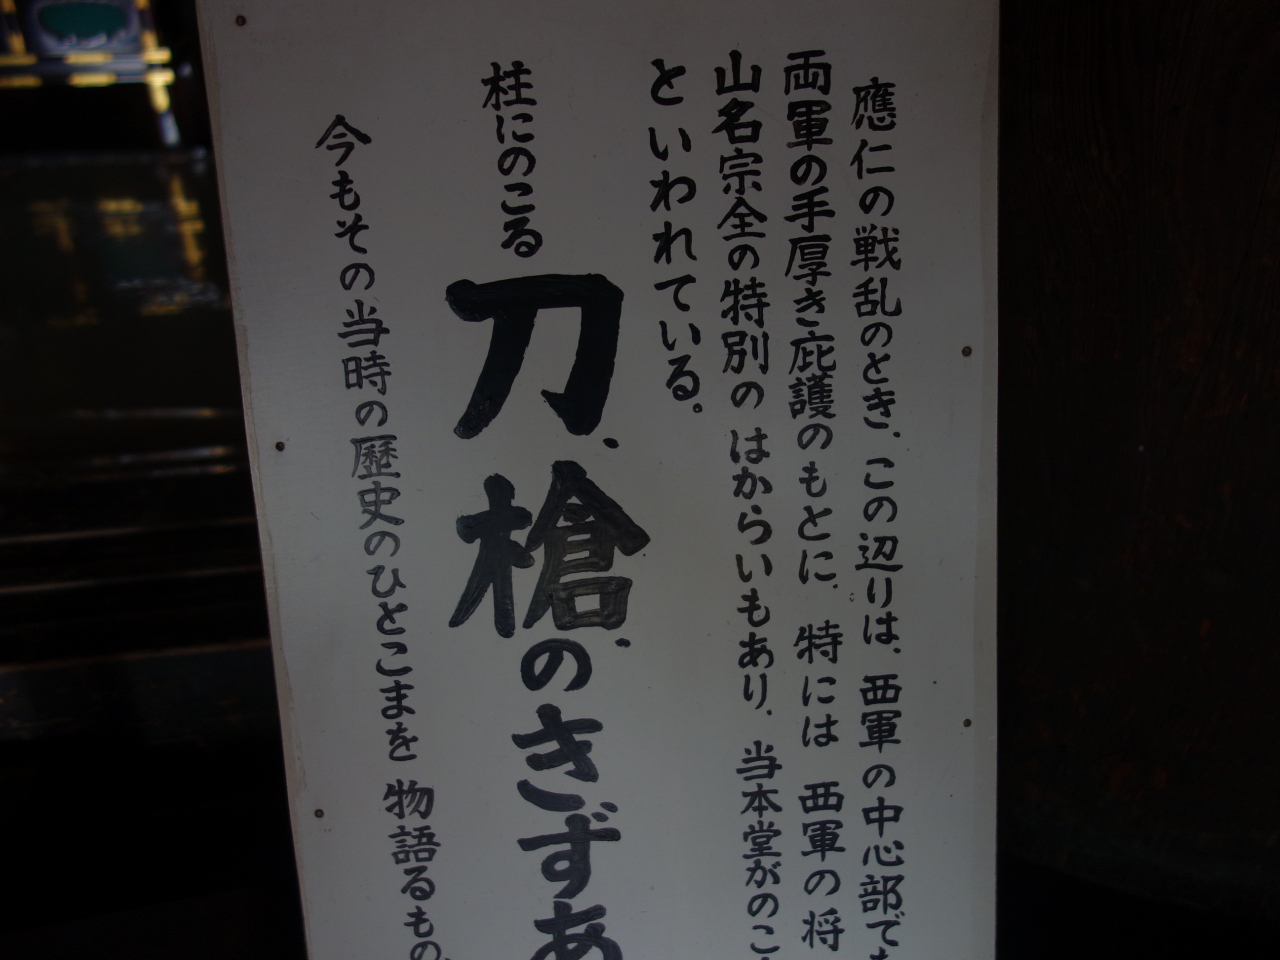 應仁の戦乱のとき、この辺りは、西軍の中心部で
両軍の手厚き庇護のもとに、特には西軍の将
山名宗全の特別のはからいもあり、当本堂がのこ
といわれている。
柱にのこる刀、槍のきずあ
今もその当時の歴史のひとこまを物語るもの